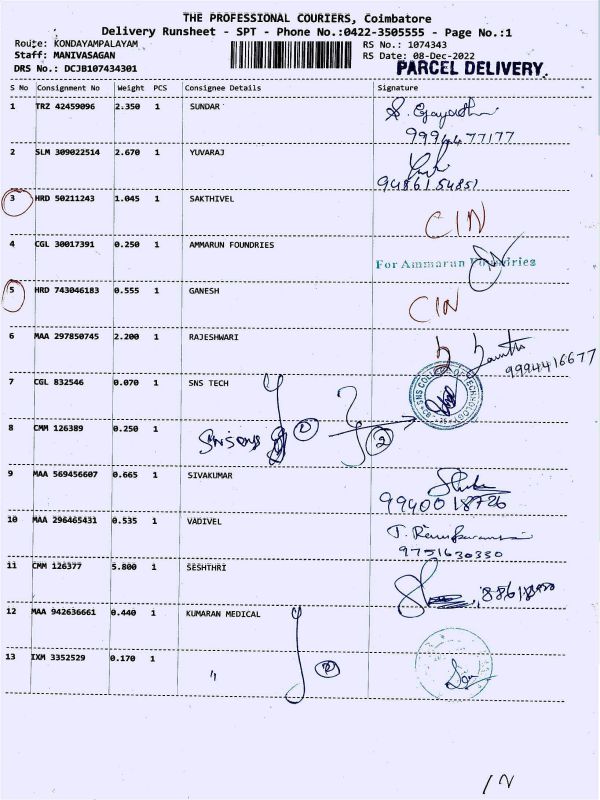 THE PROFESSIONAL COURIERS, Coimbatore
Delivery Runsheet - SPT - Phone No.:0422-3505555 - Page No.:1
Route: KONDAYAMPALAYAM RS No.: 1074343
Staff: MANIVASAGAN RS Date: 08-Dec-2022
DRS No.: DCJB107434301 PARCEL DELIVERY
S No Consignment No Weight PCS Consignee Details Signature
1 TRZ 42459096 2.350 1 SUNDAR
9994477177
2 SLM 309022514 2.670 1 YUVARAJ
9486154851
3 HRD 50211243 1.045 1 SAKTHIVEL CIN
4 CGL 30017391 0.250 1 AMMARUN FOUNDRIES
For Ammarun Foundries
5 HRD 743046183 0.555 1 GANESH CIN
6 MAA 297850745 2.200 1 RAJESHWARI
9994416677
7 CGL 832546 0.070 1 SNS TECH
SNS COLLEGE OF TECHNOLOGY
8 CMM 126389 0.250 1
1 2
9 MAA 569456607 0.665 1 SIVAKUMAR
9940018726
10 MAA 296465431 0.535 1 VADIVEL
9751630330
11 CMM 126377 5.800 1 SESHTHRI
12 MAA 942636661 0.440 1 KUMARAN MEDICAL
13 IXM 3352529 0.170 1 "
2
IN